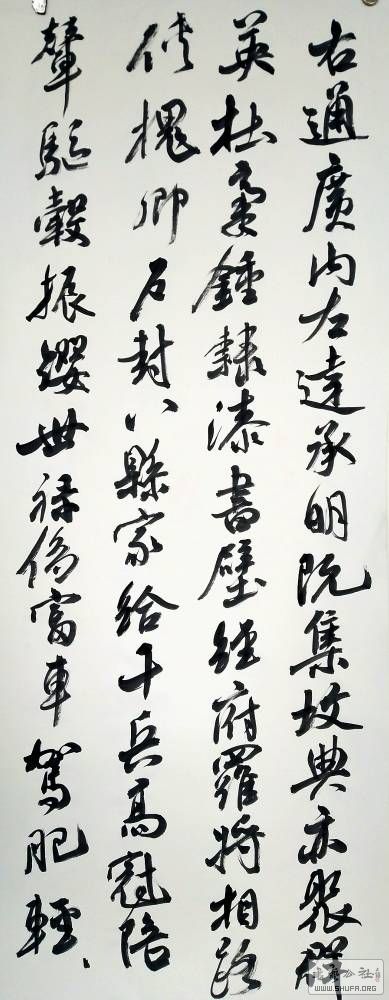 右通廣内左達承明既集坟典亦聚群
英杜稾鍾隸漆書壁經府羅將相路
俠槐卿户封八縣家給千兵高冠陪
輦駈轂振纓世祿侈富車駕肥輕
書法公社
WWW.SHUFA.ORG